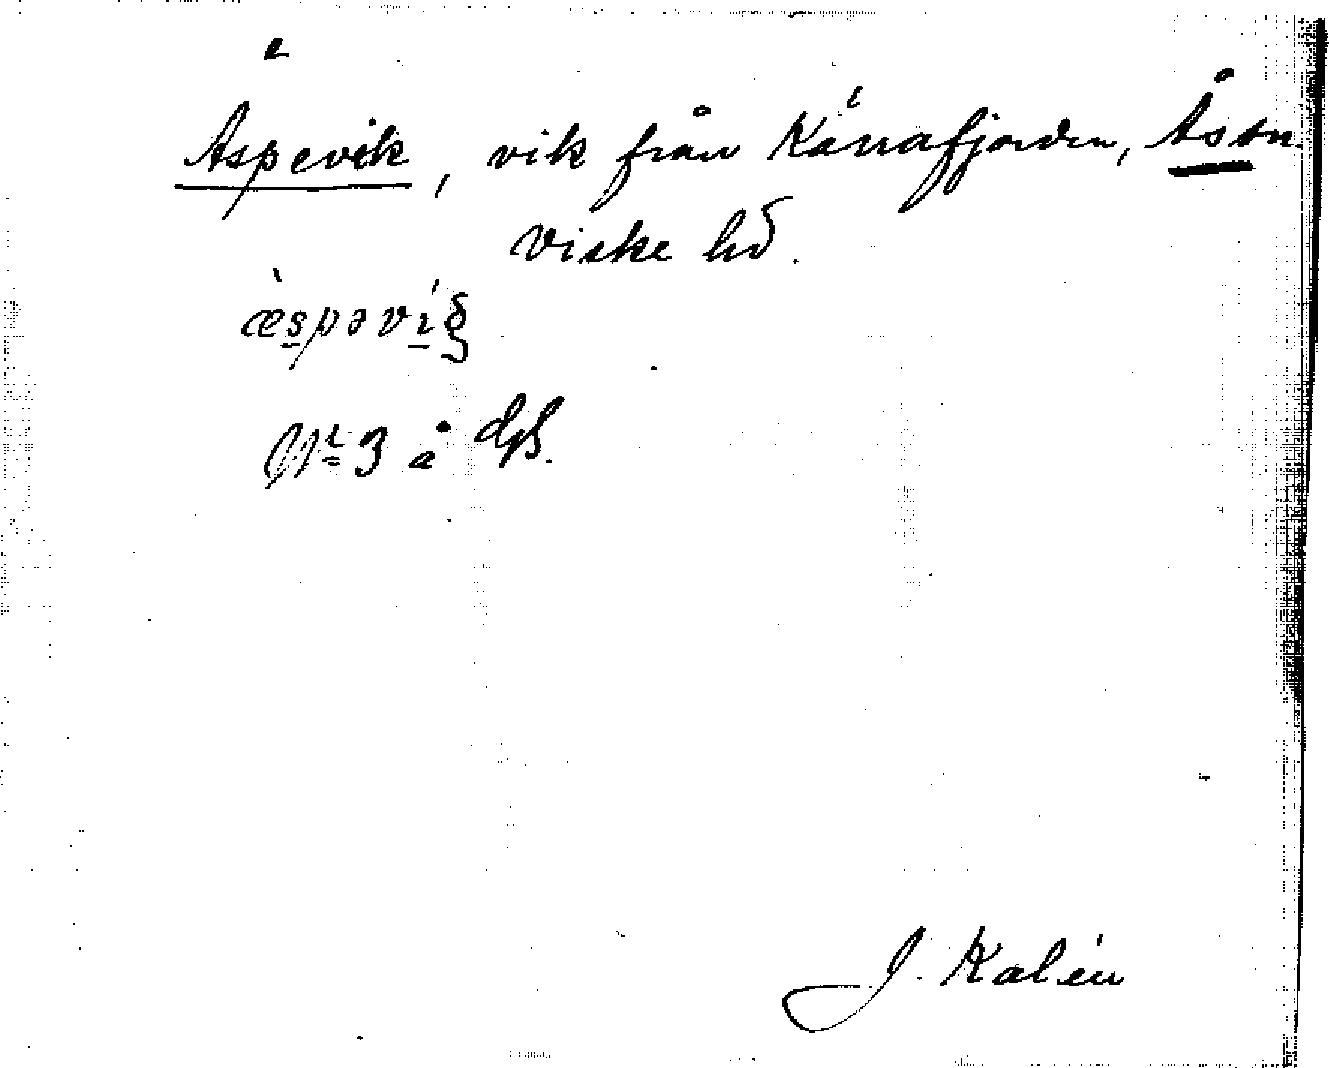 Äspevik, vik från Kärrafjorden, Ås sn.
Viske hd.
æ̀spəvíg
Nr 3 å
J. Kalén